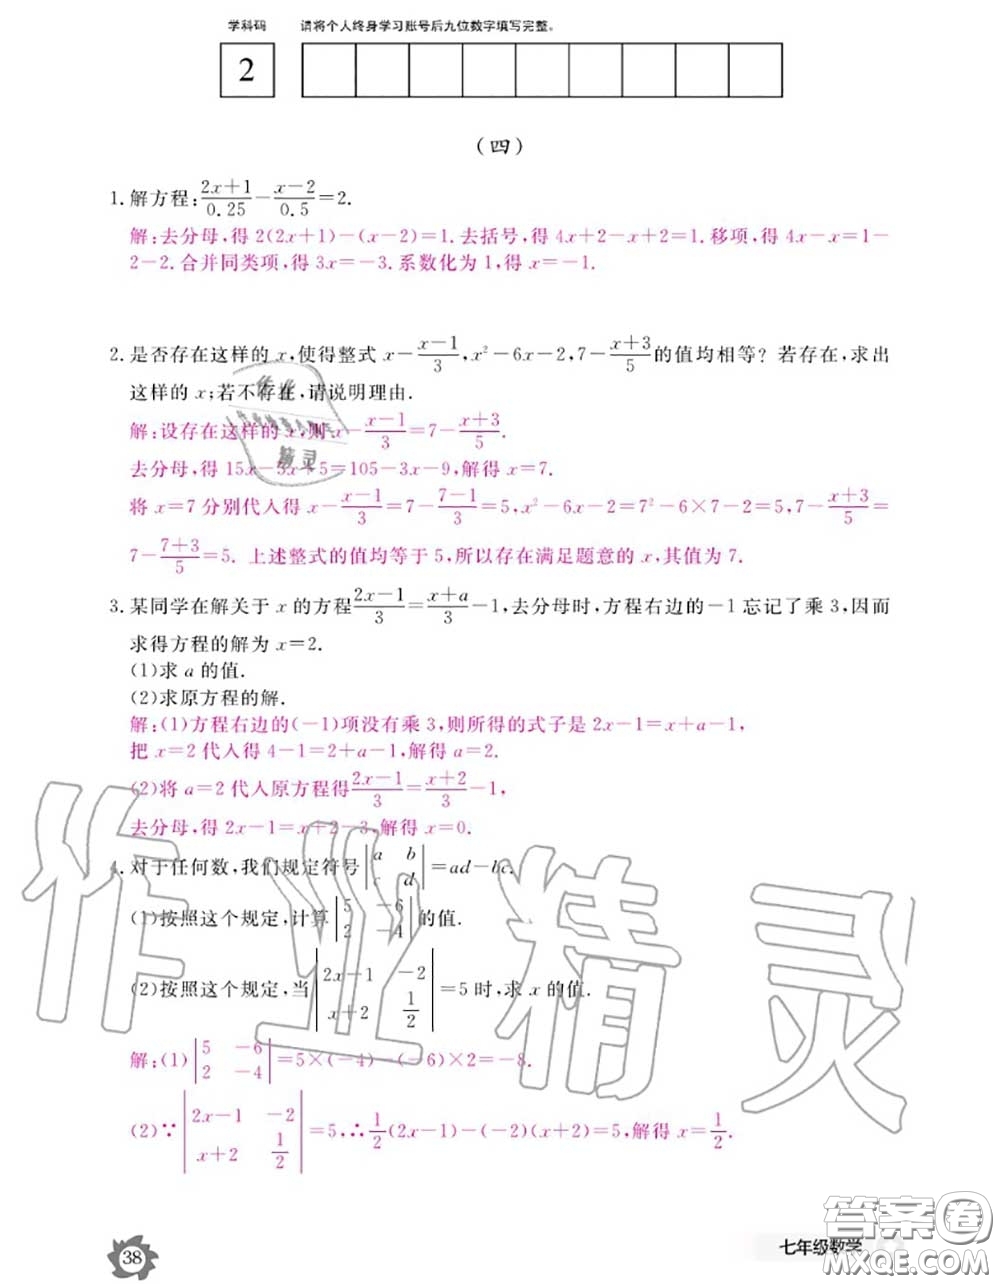 学科码 请将个人终身学习账号后九位数字填写完整。
2
(四)
1. 解方程:\frac{2x+1}{0.25}-\frac{x-2}{0.5}=2.
解:去分母,得 2(2x+1)-(x-2)=1. 去括号,得 4x+2-x+2=1. 移项,得 4x-x=1-
2-2. 合并同类项,得 3x=-3. 系数化为 1,得 x=-1.
2. 是否存在这样的 x,使得整式 x-\frac{x-1}{3},x²-6x-2,7-\frac{x+3}{5}的值均相等?若存在,求出
这样的 x;若不存在,请说明理由.
解:设存在这样的 x,则 x-\frac{x-1}{3}=7-\frac{x+3}{5}.
去分母,得 15x-5x+5=105-3x-9,解得 x=7.
将 x=7 分别代入得 x-\frac{x-1}{3}=7-\frac{7-1}{3}=5,x²-6x-2=7²-6×7-2=5,7-\frac{x+3}{5}=
7-\frac{7+3}{5}=5. 上述整式的值均等于 5,所以存在满足题意的 x,其值为 7.
3. 某同学在解关于 x 的方程\frac{2x-1}{3}=\frac{x+a}{3}-1,去分母时,方程右边的-1 忘记了乘 3,因而
求得方程的解为 x=2.
(1)求 a 的值.
(2)求原方程的解.
解:(1)方程右边的(-1)项没有乘 3,则所得的式子是 2x-1=x+a-1,
把 x=2 代入得 4-1=2+a-1,解得 a=2.
(2)将 a=2 代入原方程得\frac{2x-1}{3}=\frac{x+2}{3}-1,
去分母,得 2x-1=x+2-3,解得 x=0.
4. 对于任何数,我们规定符号|a b; c d|=ad-bc.
(1)按照这个规定,计算|5 -6; 2 -4|的值.
(2)按照这个规定,当|2x-1 -2; x+2 \frac{1}{2}|=5 时,求 x 的值.
解:(1)|5 -6; 2 -4|=5×(-4)-(-6)×2=-8.
(2)∵|2x-1 -2; x+2 \frac{1}{2}|=5,∴\frac{1}{2}(2x-1)-(-2)(x+2)=5,解得 x=\frac{1}{2}.
作业精灵
38
七年级数学
答案圈
MXQE.COM